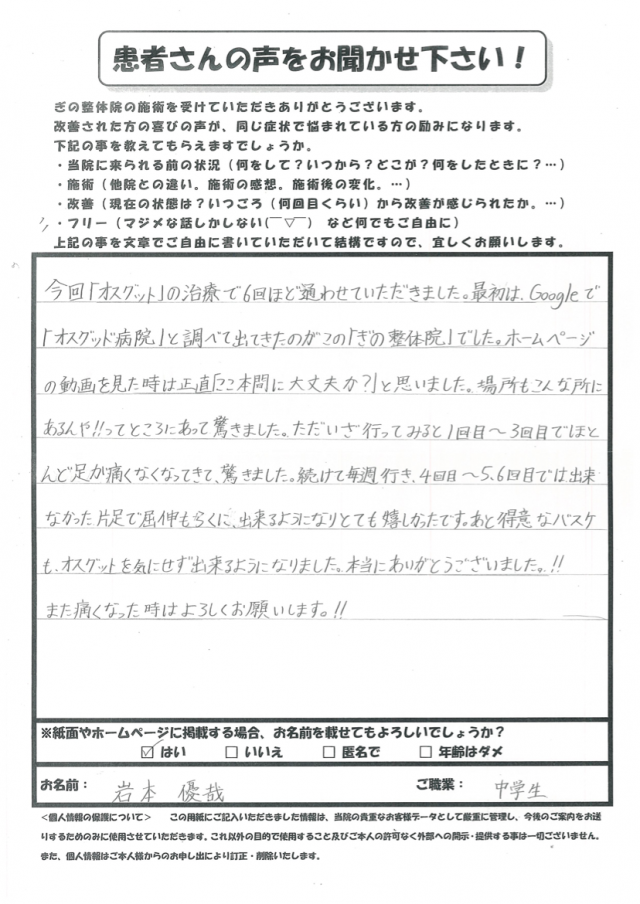 患者さんの声をお聞かせ下さい！
ぎの整体院の施術を受けていただきありがとうございます。
改善された方の喜びの声が、同じ症状で悩まれている方の励みになります。
下記の事を教えてもらえますでしょうか。
・当院に来られる前の状況（何をして？いつから？どこが？何をしたときに？…）
・施術（他院との違い。施術の感想。施術後の変化。…）
・改善（現在の状態は？いつごろ（何回目くらい）から改善が感じられたか。…）
・フリー（マジメな話しかしない(￣▽￣)　など何でもご自由に）
上記の事を文章でご自由に書いていただいて結構ですので、宜しくお願いします。
今回「オスグット」の治療で6回ほど通わせていただきました。最初は、Googleで
「オスグッド病院」と調べて出てきたのがこの「ぎの整体院」でした。ホームページ
の動画を見た時は正直「ここ本間に大丈夫か？」と思いました。場所もこんな所に
あるんや!!ってところにあって驚きました。ただいざ行ってみると1回目～3回目でほと
んど足が痛くなくなってきて、驚きました。続けて毎週行き、4回目～5、6回目では出来
なかった片足で屈伸もらくに、出来るようになりとても嬉しかったです。あと得意なバスケ
も、オスグットを気にせず出来るようになりました。本当にありがとうございました。!!
また痛くなった時はよろしくお願いします。!!
※紙面やホームページに掲載する場合、お名前を載せてもよろしいでしょうか？
☑ はい　□ いいえ　□ 匿名で　□ 年齢はダメ
お名前： 岩本 優哉　ご職業： 中学生
＜個人情報の保護について＞　この用紙にご記入いただきました情報は、当院の貴重なお客様データとして厳重に管理し、今後のご案内をお送
りするためのみに使用させていただきます。これ以外の目的で使用すること及びご本人の許可なく外部への開示・提供する事は一切ございません。
また、個人情報はご本人様からのお申し出により訂正・削除いたします。